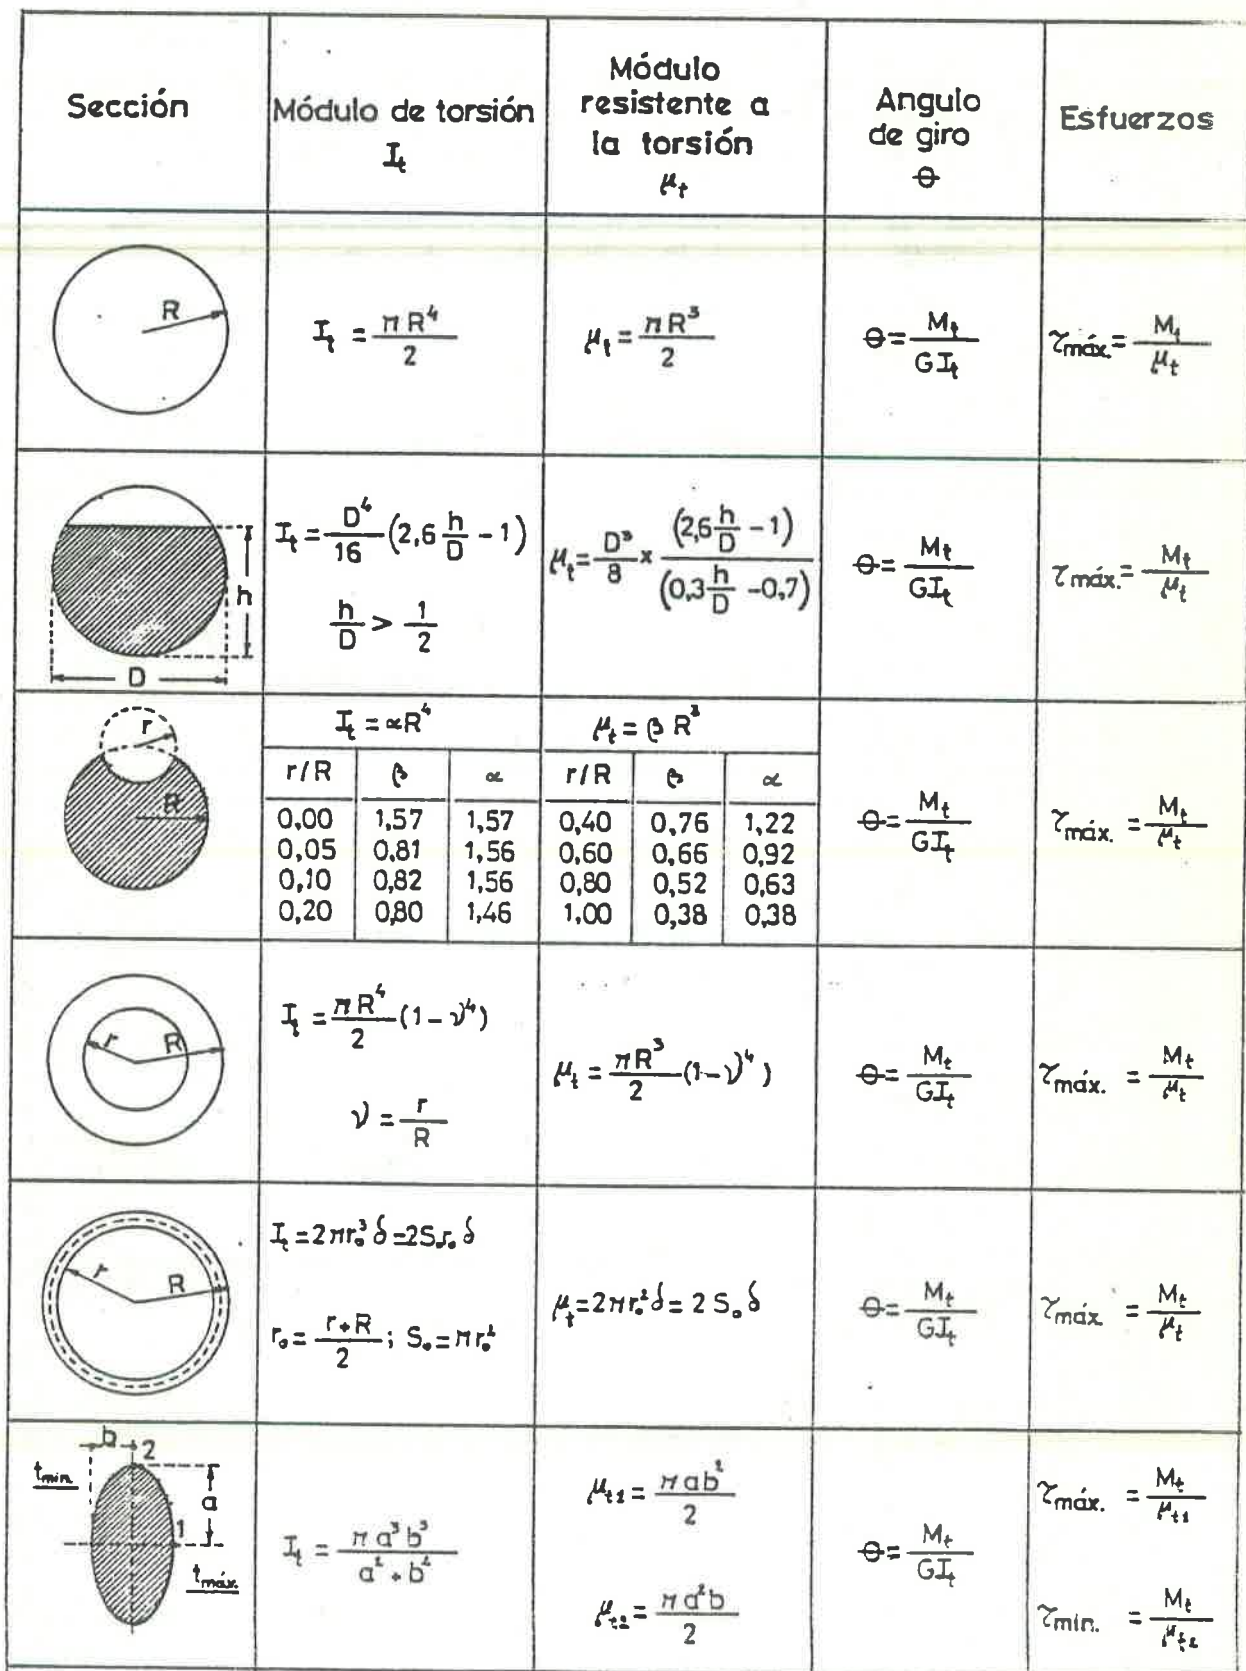 Sección
Módulo de torsión
I_t
Módulo
resistente a
la torsión
μ_t
Angulo
de giro
θ
Esfuerzos
R
I_t = πR⁴/2
μ_t = πR³/2
θ = M_t/GI_t
τ máx. = M_t/μ_t
h
D
I_t = D⁴/16 (2,6 h/D - 1)
h/D > 1/2
μ_t = D³/8 x (2,6 h/D - 1)/(0,3 h/D - 0,7)
θ = M_t/GI_t
τ máx. = M_t/μ_t
r
R
I_t = αR⁴
μ_t = β R³
r/R β α r/R β α
0,00 1,57 1,57 0,40 0,76 1,22
0,05 0,81 1,56 0,60 0,66 0,92
0,10 0,82 1,56 0,80 0,52 0,63
0,20 0,80 1,46 1,00 0,38 0,38
θ = M_t/GI_t
τ máx. = M_t/μ_t
r R
I_t = πR⁴/2 (1 - ν⁴)
ν = r/R
μ_t = πR³/2 (1 - ν⁴)
θ = M_t/GI_t
τ máx. = M_t/μ_t
r R
I_t = 2πr₀³ δ = 2S₀r₀ δ
r₀ = r+R/2 ; S₀ = πr₀²
μ_t = 2πr₀² δ = 2 S₀ δ
θ = M_t/GI_t
τ máx. = M_t/μ_t
b 2
t mín.
a
1
t máx.
I_t = π a³ b³/a² + b²
μ_t1 = π ab²/2
μ_t2 = π a²b/2
θ = M_t/GI_t
τ máx. = M_t/μ_t1
τ mín. = M_t/μ_t2